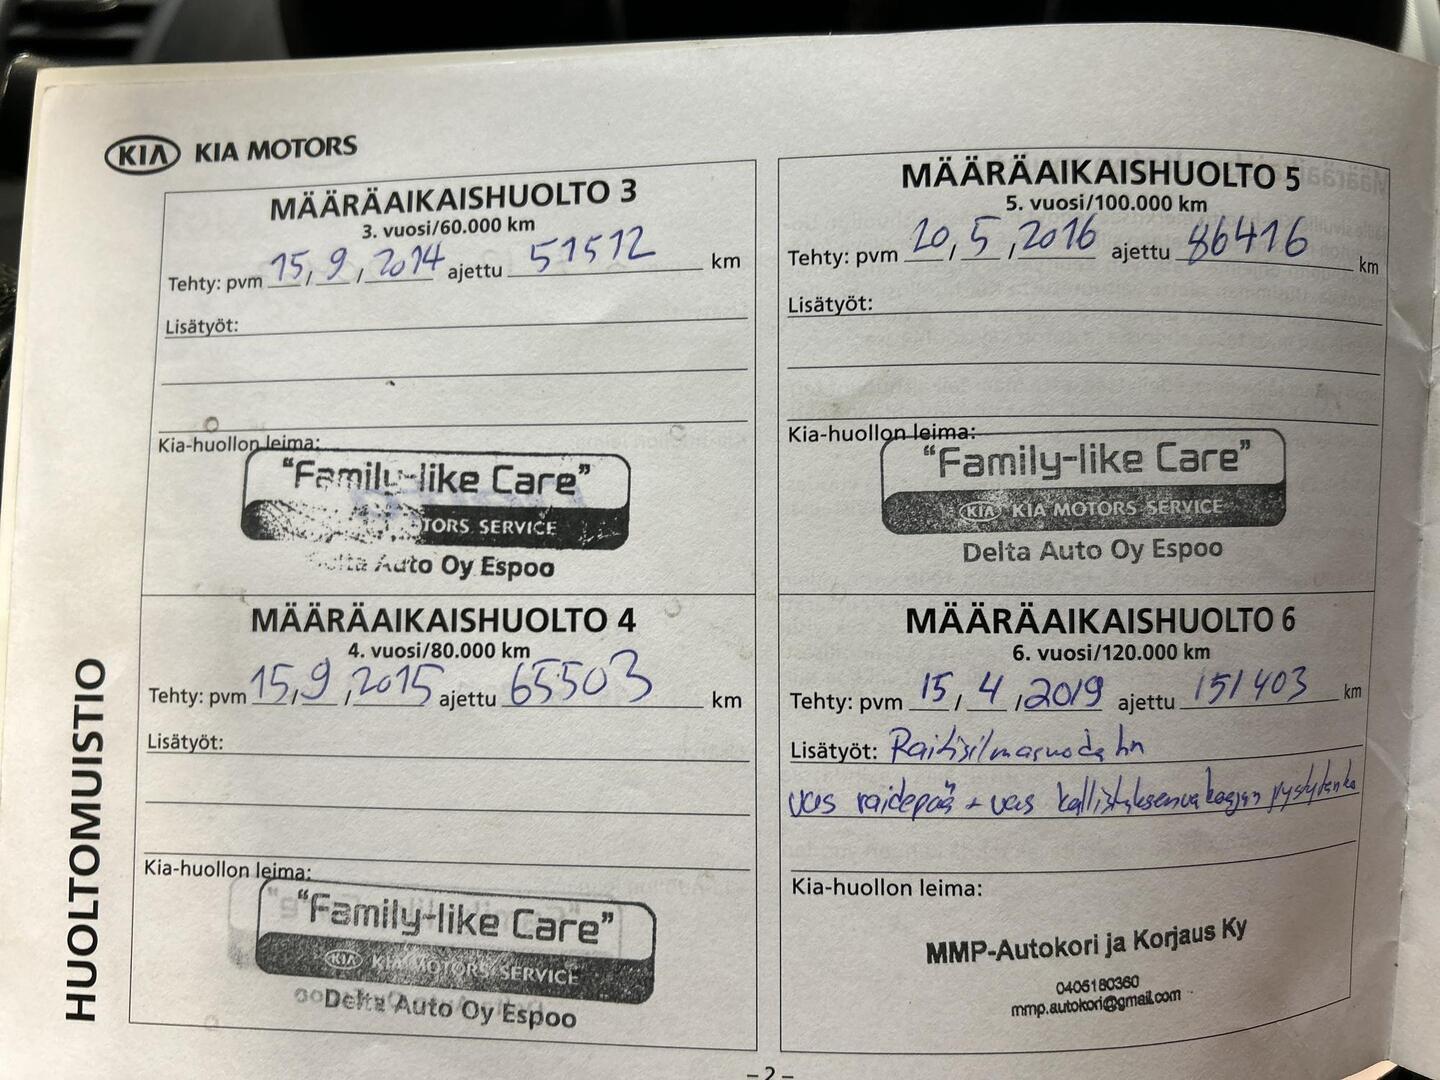 KIA KIA MOTORS
MÄÄRÄAIKAISHUOLTO 3
3. vuosi/60.000 km
Tehty: pvm 15, 9, 2014 ajettu 51512 km
Lisätyöt:
Kia-huollon leima:
"Family-like Care"
TORS SERVICE
Delta Auto Oy Espoo
MÄÄRÄAIKAISHUOLTO 4
4. vuosi/80.000 km
Tehty: pvm 15, 9, 2015 ajettu 65503 km
Lisätyöt:
Kia-huollon leima:
"Family-like Care"
KIA KIA MOTORS SERVICE
Delta Auto Oy Espoo
MÄÄRÄAIKAISHUOLTO 5
5. vuosi/100.000 km
Tehty: pvm 20, 5, 2016 ajettu 86416 km
Lisätyöt:
Kia-huollon leima:
"Family-like Care"
KIA KIA MOTORS SERVICE
Delta Auto Oy Espoo
MÄÄRÄAIKAISHUOLTO 6
6. vuosi/120.000 km
Tehty: pvm 15, 4, 2019 ajettu 151403 km
Lisätyöt:
vas raidepää + vas kallistuksenvakaajan pystytanko
Kia-huollon leima:
MMP-Autokori ja Korjaus Ky
0405180360
mmp.autokori@gmail.com
HUOLTOMUISTIO
-2-